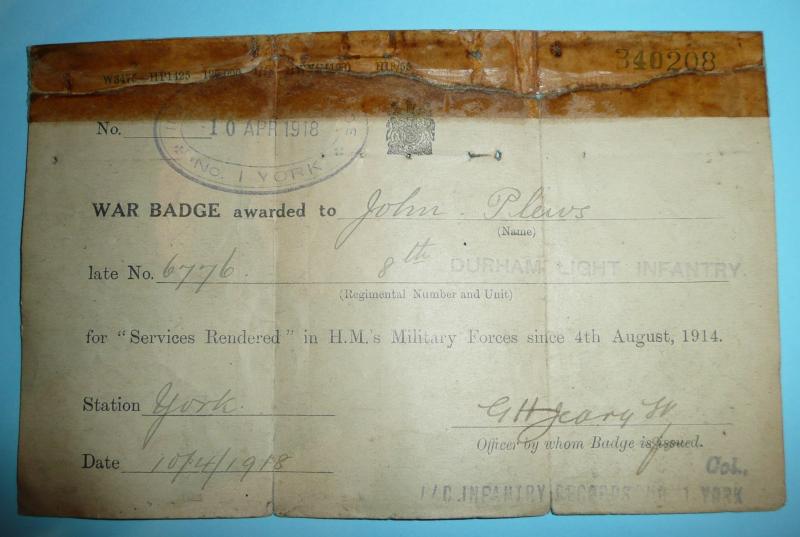 W3476—HP1425
340208
No.
10 APR 1918
No. 1 YORK
WAR BADGE awarded to John Plews
(Name)
late No. 6776 8th DURHAM LIGHT INFANTRY.
(Regimental Number and Unit)
for "Services Rendered" in H.M.'s Military Forces since 4th August, 1914.
Station York.
Officer by whom Badge is issued.
Date 10/4/1918
Col.,
I/C. INFANTRY RECORDS No. 1 YORK